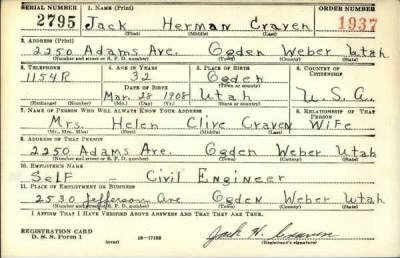 SERIAL NUMBER 1. NAME (Print) ORDER NUMBER
2795 Jack Herman Craven 1937
(First) (Middle) (Last)
2. ADDRESS (Print)
2250 Adams Ave. Ogden Weber Utah
(Number and street or R. F. D. number) (Town) (County) (State)
3. TELEPHONE 4. AGE IN YEARS 5. PLACE OF BIRTH 6. COUNTRY OF CITIZENSHIP
1154R 32 Ogden
DATE OF BIRTH (Town or county)
Mar. 28 1908 Utah U.S.A.
(Exchange) (Number) (Mo.) (Day) (Yr.) (State or country)
7. NAME OF PERSON WHO WILL ALWAYS KNOW YOUR ADDRESS 8. RELATIONSHIP OF THAT PERSON
Mrs. Helen Clive Craven Wife
(Mr., Mrs., Miss) (First) (Middle) (Last)
9. ADDRESS OF THAT PERSON
2250 Adams Ave. Ogden Weber Utah
(Number and street or R. F. D. number) (Town) (County) (State)
10. EMPLOYER'S NAME
Self - Civil Engineer
11. PLACE OF EMPLOYMENT OR BUSINESS
2530 Jefferson Ave Ogden Weber Utah
(Number and street or R. F. D. number) (Town) (County) (State)
I AFFIRM THAT I HAVE VERIFIED ABOVE ANSWERS AND THAT THEY ARE TRUE.
REGISTRATION CARD
D. S. S. Form 1 (over) Jack H. Craven
(Registrant's signature)